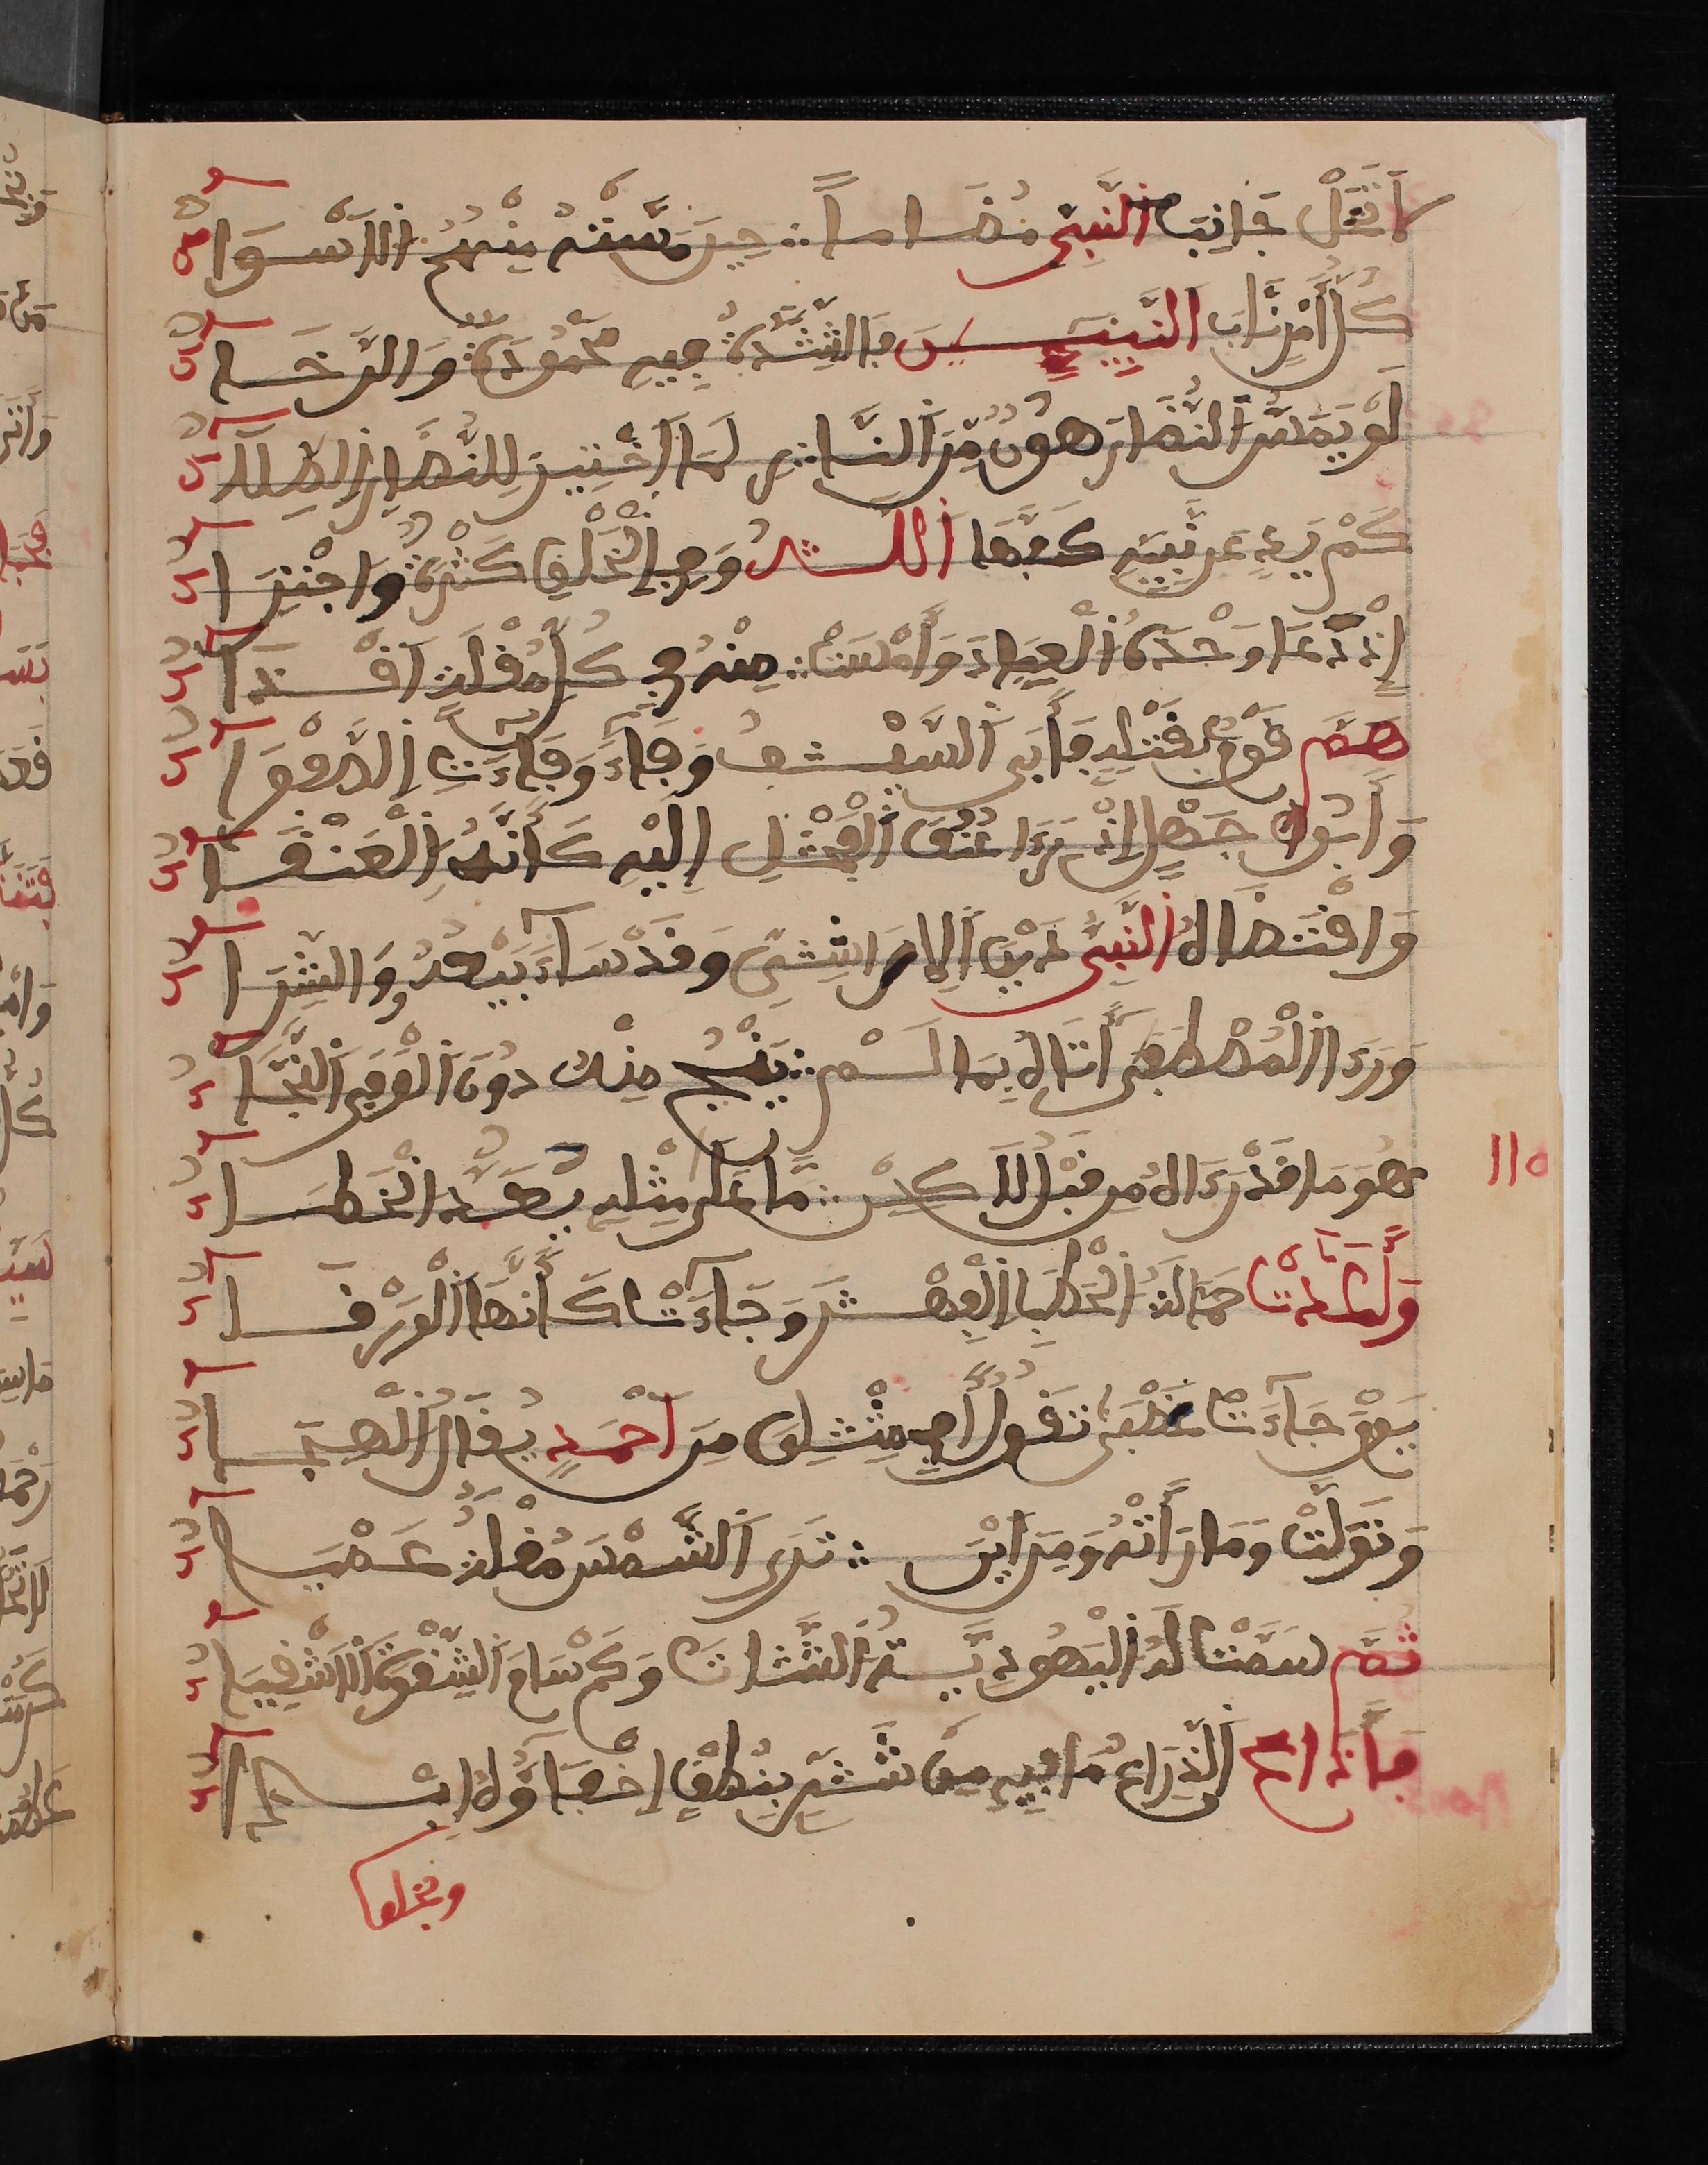 لَا تَخَلْ جَانِبَ النَّبِيِّ مُضَاماً ∴ حِينَ مَسَّتْهُ مِنْهُمُ الْأَسْوَاءُ
كُلُّ أَمْرٍ نَّابَ النَّبِيِّينَ فَالشِّدَّةُ فِيهِ مَحْمُودَةٌ وَالرَّخَاءُ
لَوْ يَمَسُّ النُّضَارَ هُونٌ مِّنَ النَّارِ لَمَا اخْتِيرَ لِلنُّضَارِ الصِّلَاءُ
كَمْ يَدٍ عَن نَّبِيِّهِ كَفَّهَا اللَّهُ وَفِي الْخَلْقِ كَثْرَةٌ وَاجْتِرَاءُ
إِذْ دَعَا وَحْدَهُ الْعِبَادَ وَأَمْسَتْ ∴ مِنْهُ فِي كُلِّ مُقْلَةٍ أَقْذَاءُ
هَمَّ قَوْمٌ بِقَتْلِهِ فَأَبَى السَّيْفُ وَفَاءً وَفَاءَتِ الصَّفْوَاءُ
وَأَبُو جَهْلٍ إِذْ رَءَا عُنُقَ الْفَحْلِ إِلَيْهِ كَأَنَّهُ الْعَنْقَاءُ
وَاقْتَضَاهُ النَّبِيُّ دَيْنَ الْإِرَاشِيِّ وَقَدْ سَاءَ بَيْعُهُ وَالشِّرَاءُ
وَرَءَا الْمُصْطَفَى أَتَاهُ بِمَا لَمْ ∴ يَنْجُ مِنْهُ دُونَ الْوَفَى النَّجَاءُ
هُوَ مَا قَدْ رَءَاهُ مِن قَبْلُ لَكِنْ ∴ مَّا عَلَى مِثْلِهِ يُعَدُّ الْخَطَاءُ
وَأَعَدَّتْ حَمَّالَةُ الْحَطَبِ الْفِهْرَ وَجَاءَتْ كَأَنَّهَا الْوَرْقَاءُ
يَوْمَ جَاءَتْ غَضْبَى تَقُولُ أَفِي مِثْلِيَ مِنَ احْمَدٍ يُقَالُ الْهِجَاءُ
وَتَوَلَّتْ وَمَا رَأَتْهُ وَمِنْ أَيْنَ ∴ تَرَى الشَّمْسَ مُقْلَةٌ عَمْيَاءُ
ثُمَّ سَمَّتْ لَهُ الْيَهُودِيَّةُ الشَّاةَ وَكَمْ سَامَ الشِّقْوَةَ الْأَشْقِيَاءُ
فَأَذَاعَ الذِّرَاعُ مَا فِيهِ مِن شَرٍّ بِنُطْقٍ إِخْفَاؤُهُ إِبْدَاءُ
وبخلق